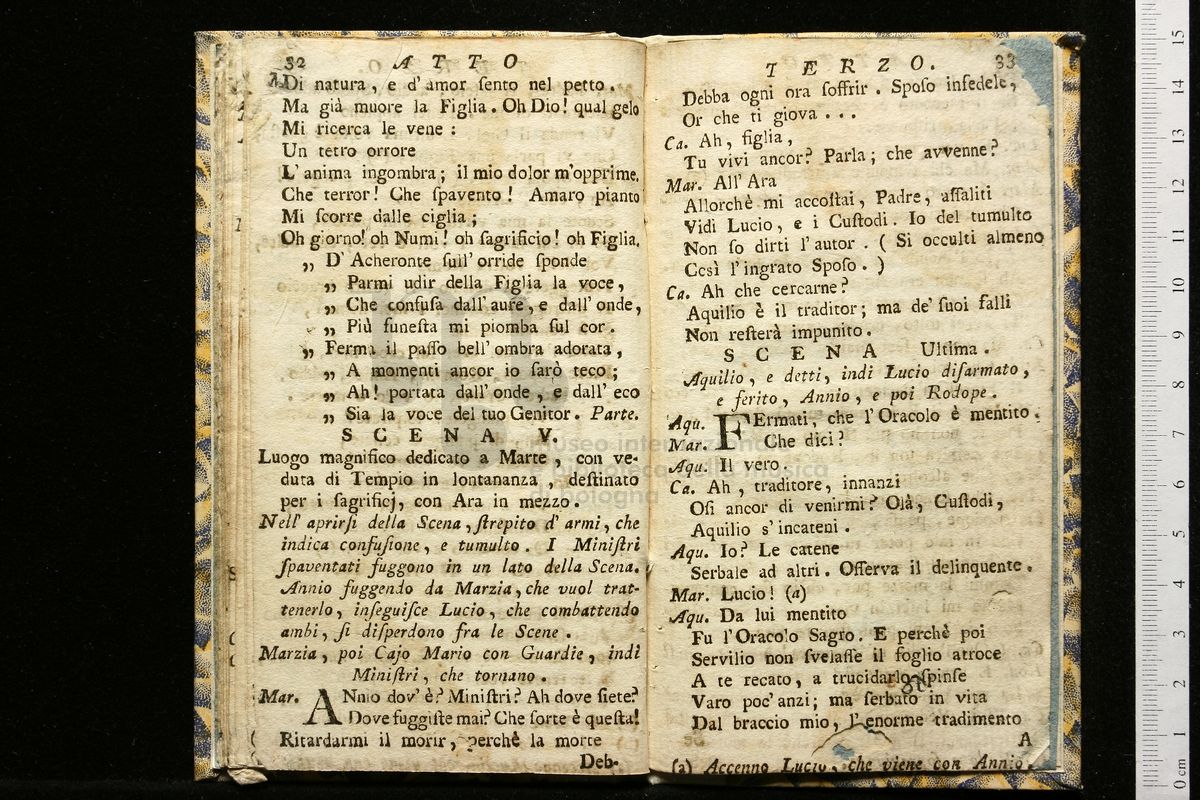 32 ATTO
Di natura, e d'amor ſento nel petto.
Ma già muore la Figlia. Oh Dio! qual gelo
Mi ricerca le vene:
Un tetro orrore
L'anima ingombra; il mio dolor m'opprime.
Che terror! Che ſpavento! Amaro pianto
Mi ſcorre dalle ciglia;
Oh giorno! oh Numi! oh ſagrificio! oh Figlia.
„ D'Acheronte ſull'orride ſponde
„ Parmi udir della Figlia la voce,
„ Che confuſa dall'aure, e dall'onde,
„ Più funeſta mi piomba ſul cor.
„ Ferma il paſſo bell'ombra adorata,
„ A momenti ancor io ſarò teco;
„ Ah! portata dall'onde, e dall'eco
„ Sia la voce del tuo Genitor. Parte.
SCENA V.
Luogo magnifico dedicato a Marte, con ve-
duta di Tempio in lontananza, deſtinato
per i ſagrificj, con Ara in mezzo.
Nell'aprirſi della Scena, ſtrepito d'armi, che
indica confuſione, e tumulto. I Miniſtri
ſpaventati fuggono in un lato della Scena.
Annio fuggendo da Marzia, che vuol trat-
tenerlo, inſeguiſce Lucio, che combattendo
ambi, ſi diſperdono fra le Scene.
Marzia, poi Cajo Mario con Guardie, indi
Miniſtri, che tornano.
Mar. ANnio dov'è? Miniſtri? Ah dove ſiete?
Dove fuggiſte mai? Che ſorte è queſta!
Ritardarmi il morir, perchè la morte
Deb-
TERZO. 33
Debba ogni ora ſoffrir. Spoſo infedele,
Or che ti giova...
Ca. Ah, figlia,
Tu vivi ancor? Parla; che avvenne?
Mar. All'Ara
Allorchè mi accoſtai, Padre, aſſaliti
Vidi Lucio, e i Cuſtodi. Io del tumulto
Non ſo dirti l'autor. (Si occulti almeno
Così l'ingrato Spoſo.)
Ca. Ah che cercarne?
Aquilio è il traditor; ma de' ſuoi falli
Non reſterà impunito.
SCENA Ultima.
Aquilio, e detti, indi Lucio diſarmato,
e ferito, Annio, e poi Rodope.
Aqu. FErmati, che l'Oracolo è mentito.
Mar. Che dici?
Aqu. Il vero.
Ca. Ah, traditore, innanzi
Oſi ancor di venirmi? Olà, Cuſtodi,
Aquilio s'incateni.
Aqu. Io? Le catene
Serbale ad altri. Oſſerva il delinquente.
Mar. Lucio! (a)
Aqu. Da lui mentito
Fu l'Oracolo Sagro. E perchè poi
Servilio non ſvelaſſe il foglio atroce
A te recato, a trucidarlo ſpinſe
Varo poc'anzi; ma ſerbato in vita
Dal braccio mio, l'enorme tradimento
A
(a) Accenno Lucio, che viene con Annio.